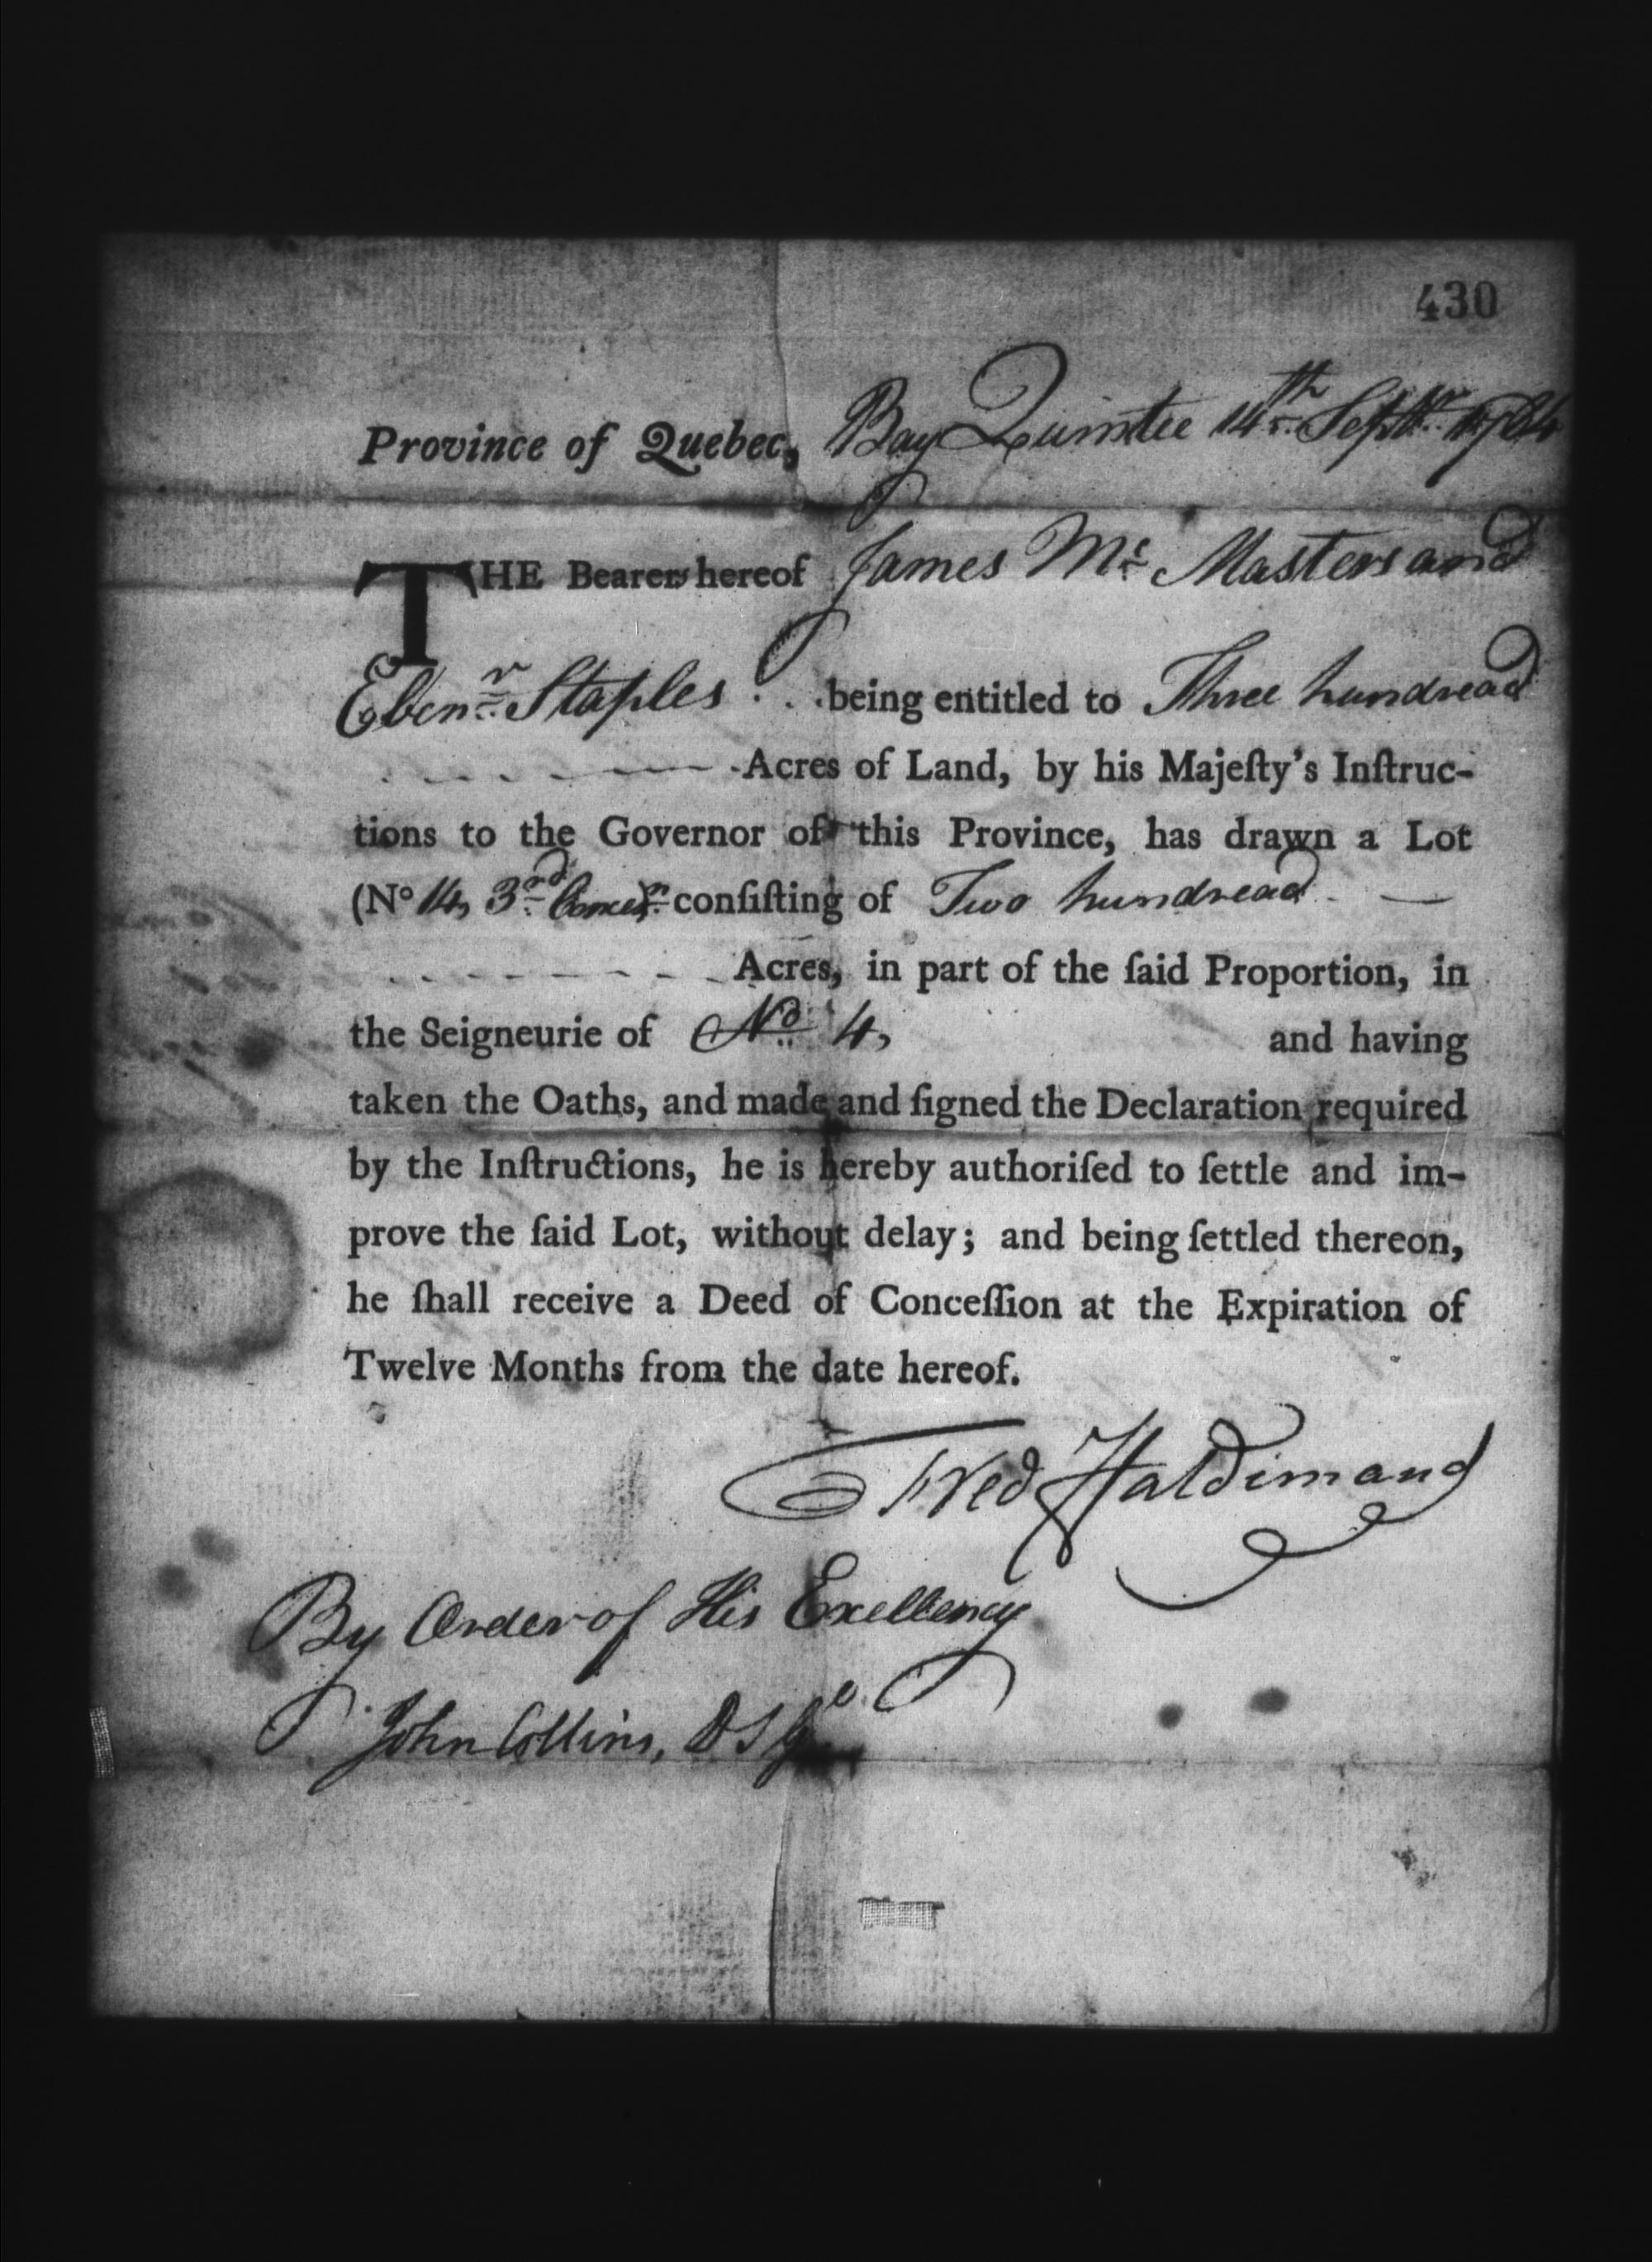 430
Province of Quebec, Bay Quintee 14th Septr. 1784
THE Bearers hereof James Mc. Masters and
Ebenr. Staples . . . being entitled to Three hundread
Acres of Land, by his Majeſty's Inſtruc-
tions to the Governor of this Province, has drawn a Lot
(No 14, 3rd Concesn. conſiſting of Two hundread —
Acres, in part of the ſaid Proportion, in
the Seigneurie of No. 4, and having
taken the Oaths, and made and ſigned the Declaration required
by the Inſtructions, he is hereby authoriſed to ſettle and im-
prove the ſaid Lot, without delay; and being ſettled thereon,
he ſhall receive a Deed of Conceſſion at the Expiration of
Twelve Months from the date hereof.
Fred Haldimand
By Order of His Exellency
John Collins, D S Gl.